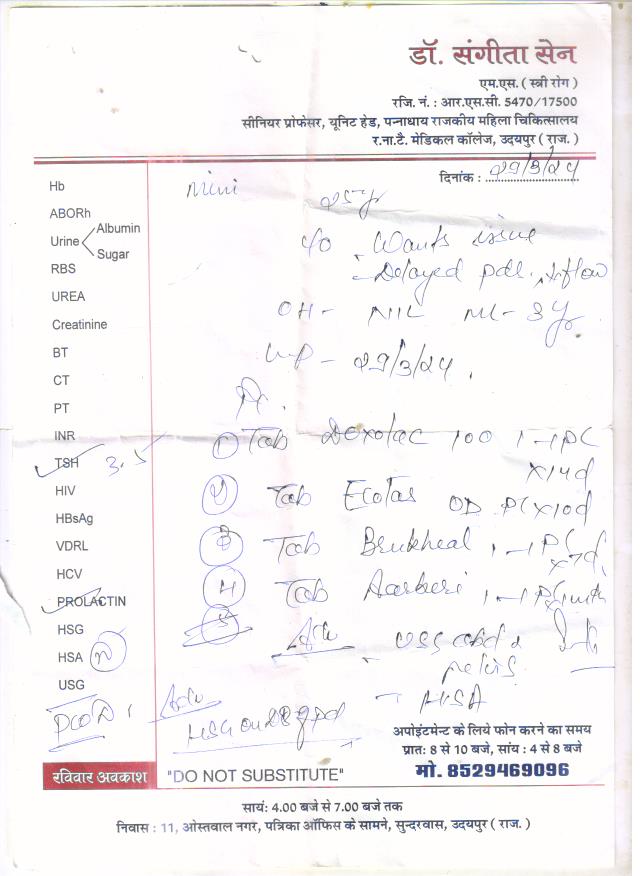 डॉ. संगीता सेन
एम.एस. ( स्त्री रोग )
रजि. नं. : आर.एस.सी. 5470/17500
सीनियर प्रोफेसर, यूनिट हेड, पन्नाधाय राजकीय महिला चिकित्सालय
र.ना.टै. मेडिकल कॉलेज, उदयपुर ( राज. )
दिनांक : 29/3/24
Hb
ABORh
Urine Albumin
Sugar
RBS
UREA
Creatinine
BT
CT
PT
INR
TSH 3.5
HIV
HBsAg
VDRL
HCV
PROLACTIN
HSG
HSA
USG
PCOD
Mini
25yr
c/o Wants issue
- Delayed pdd.
OH - NIL ML - 3yr
LMP - 29/3/24.
① Tab Doxolac 100 1-1 PC
x14d
② Tab Ecotas OD PC x10d
③ Tab Brukheal 1-1 PC
x7d
4 Tab Aarberi 1-1
5
Adv USS abd &
pelvis
- HSA
Adv
HSG on
अपोइंटमेन्ट के लिये फोन करने का समय
प्रातः 8 से 10 बजे, सांय : 4 से 8 बजे
मो. 8529469096
रविवार अवकाश
"DO NOT SUBSTITUTE"
सायं: 4.00 बजे से 7.00 बजे तक
निवास : 11, ओस्तवाल नगर, पत्रिका ऑफिस के सामने, सुन्दरवास, उदयपुर ( राज. )